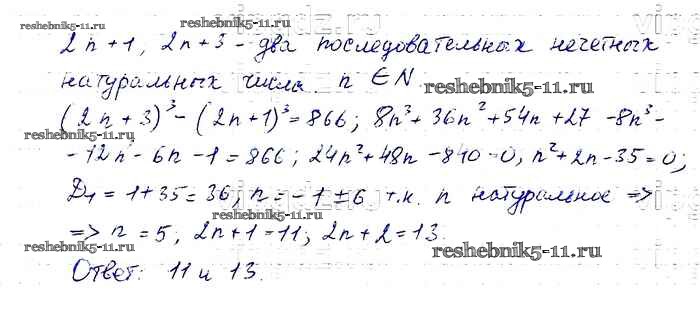 reshebnik5-11.ru
2n+1, 2n+3 - два последовательных нечетных
натуральных числа. n ∈ N
reshebnik5-11.ru
(2n+3)³-(2n+1)³=866; 8n³+36n²+54n+27-8n³-
reshebnik5-11.ru
-12n-6n-1=866; 24n²+48n-840=0, n²+2n-35=0;
D₁=1+35=36; n=-1±6 т.к. n натуральное =>
reshebnik5-11.ru
=> n=5; 2n+1=11; 2n+2=13.
reshebnik5-11.ru reshebnik5-11.ru
Ответ: 11 и 13.